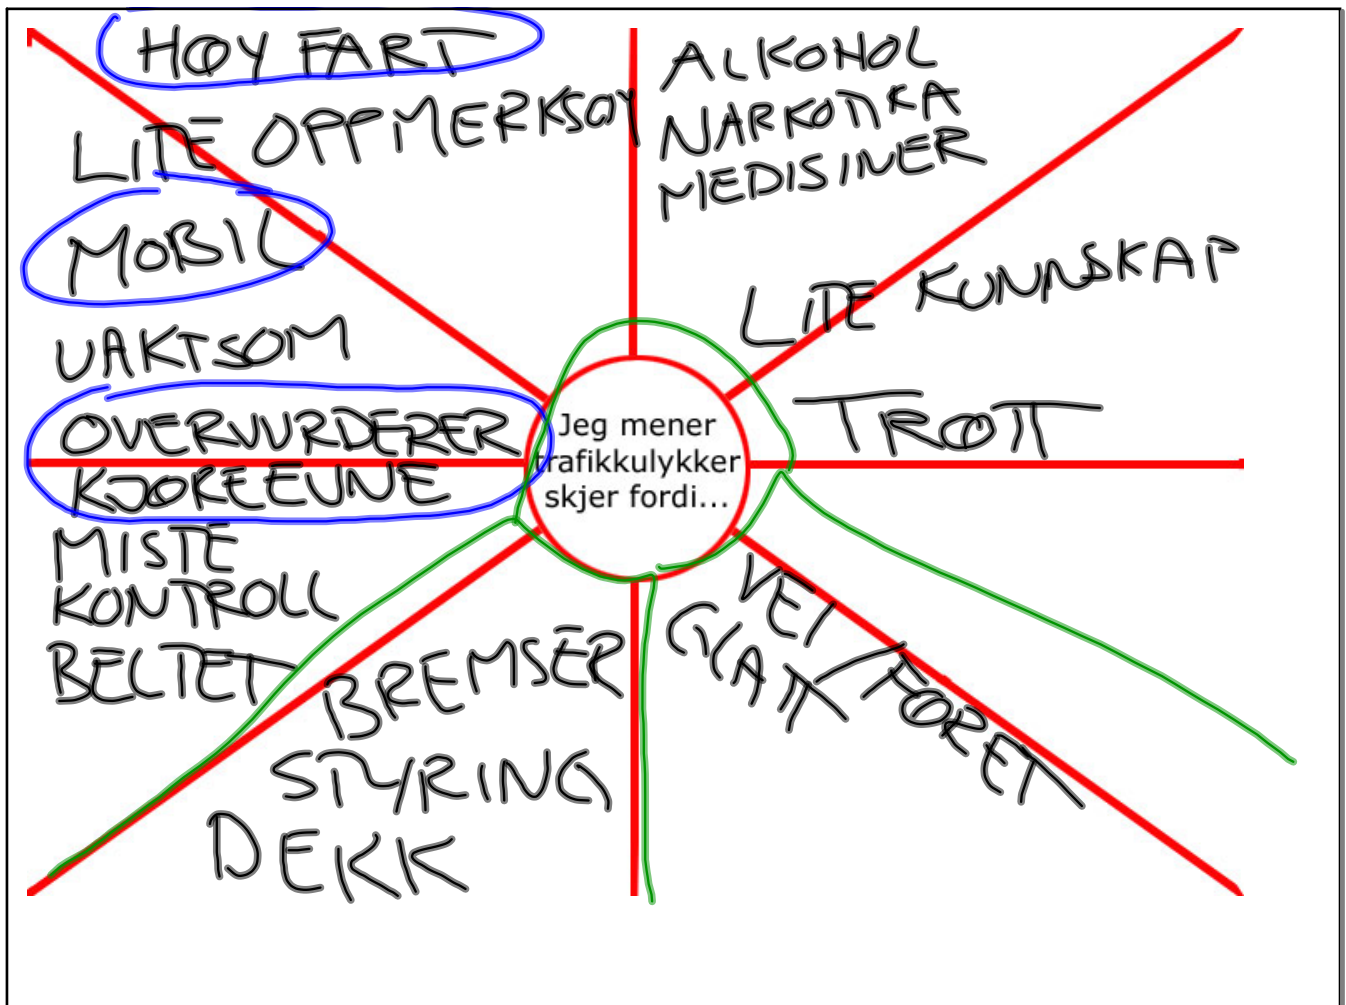 HØY FART
LITE OPPMERKSOM
MOBIL
UAKTSOM
OVERVURDERER
KJØREEVNE
MISTE
KONTROLL
BELTET
ALKOHOL
NARKOTIKA
MEDISINER
LITE KUNNSKAP
TRØTT
Jeg mener
trafikkulykker
skjer fordi...
BREMSER
STYRING
DEKK
VEI/FØRET
GLATT